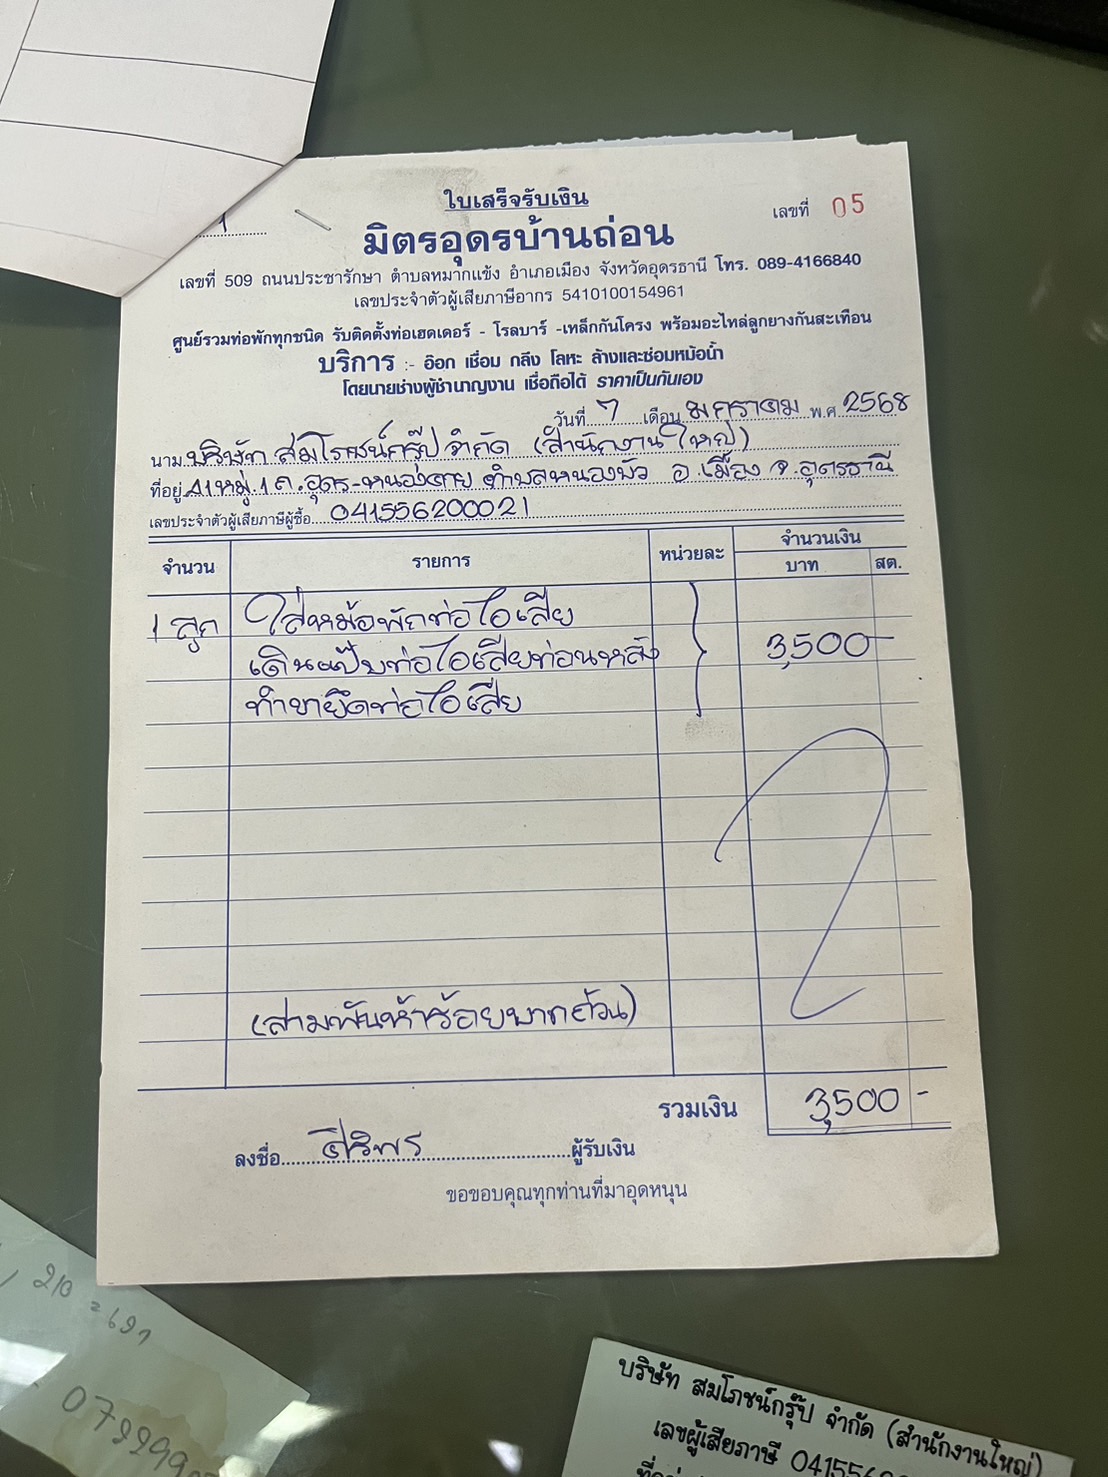 ใบเสร็จรับเงิน
เลขที่ 05
มิตรอุดรบ้านถ่อน
เลขที่ 509 ถนนประชารักษา ตำบลหมากแข้ง อำเภอเมือง จังหวัดอุดรธานี โทร. 089-4166840
เลขประจำตัวผู้เสียภาษีอากร 5410100154961
ศูนย์รวมท่อพักทุกชนิด รับติดตั้งท่อเฮดเดอร์ - โรลบาร์ -เหล็กกันโครง พร้อมอะไหล่ลูกยางกันสะเทือน
บริการ :- อ๊อก เชื่อม กลึง โลหะ ล้างและซ่อมหม้อน้ำ
โดยนายช่างผู้ชำนาญงาน เชื่อถือได้ ราคาเป็นกันเอง
วันที่ 7 เดือน มกราคม พ.ศ. 2568
นาม บริษัท สมโภชน์กรุ๊ป จำกัด (สำนักงานใหญ่)
ที่อยู่ 41 หมู่ 1 ถ.อุดร-หนองคาย ตำบลหนองบัว อ.เมือง จ.อุดรธานี
เลขประจำตัวผู้เสียภาษีผู้ซื้อ 0415562000021
จำนวน รายการ หน่วยละ จำนวนเงิน
บาท สต.
1 ลูก ใส่หม้อพักท่อไอเสีย
เดินแป๊บท่อไอเสียท่อนหลัง 3,500 -
ทำขายึดท่อไอเสีย
(สามพันห้าร้อยบาทถ้วน)
รวมเงิน 3,500 -
ลงชื่อ ศิริพร ผู้รับเงิน
ขอขอบคุณทุกท่านที่มาอุดหนุน
210
= 691
บริษัท สมโภชน์กรุ๊ป จำกัด (สำนักงานใหญ่)
เลขผู้เสียภาษี